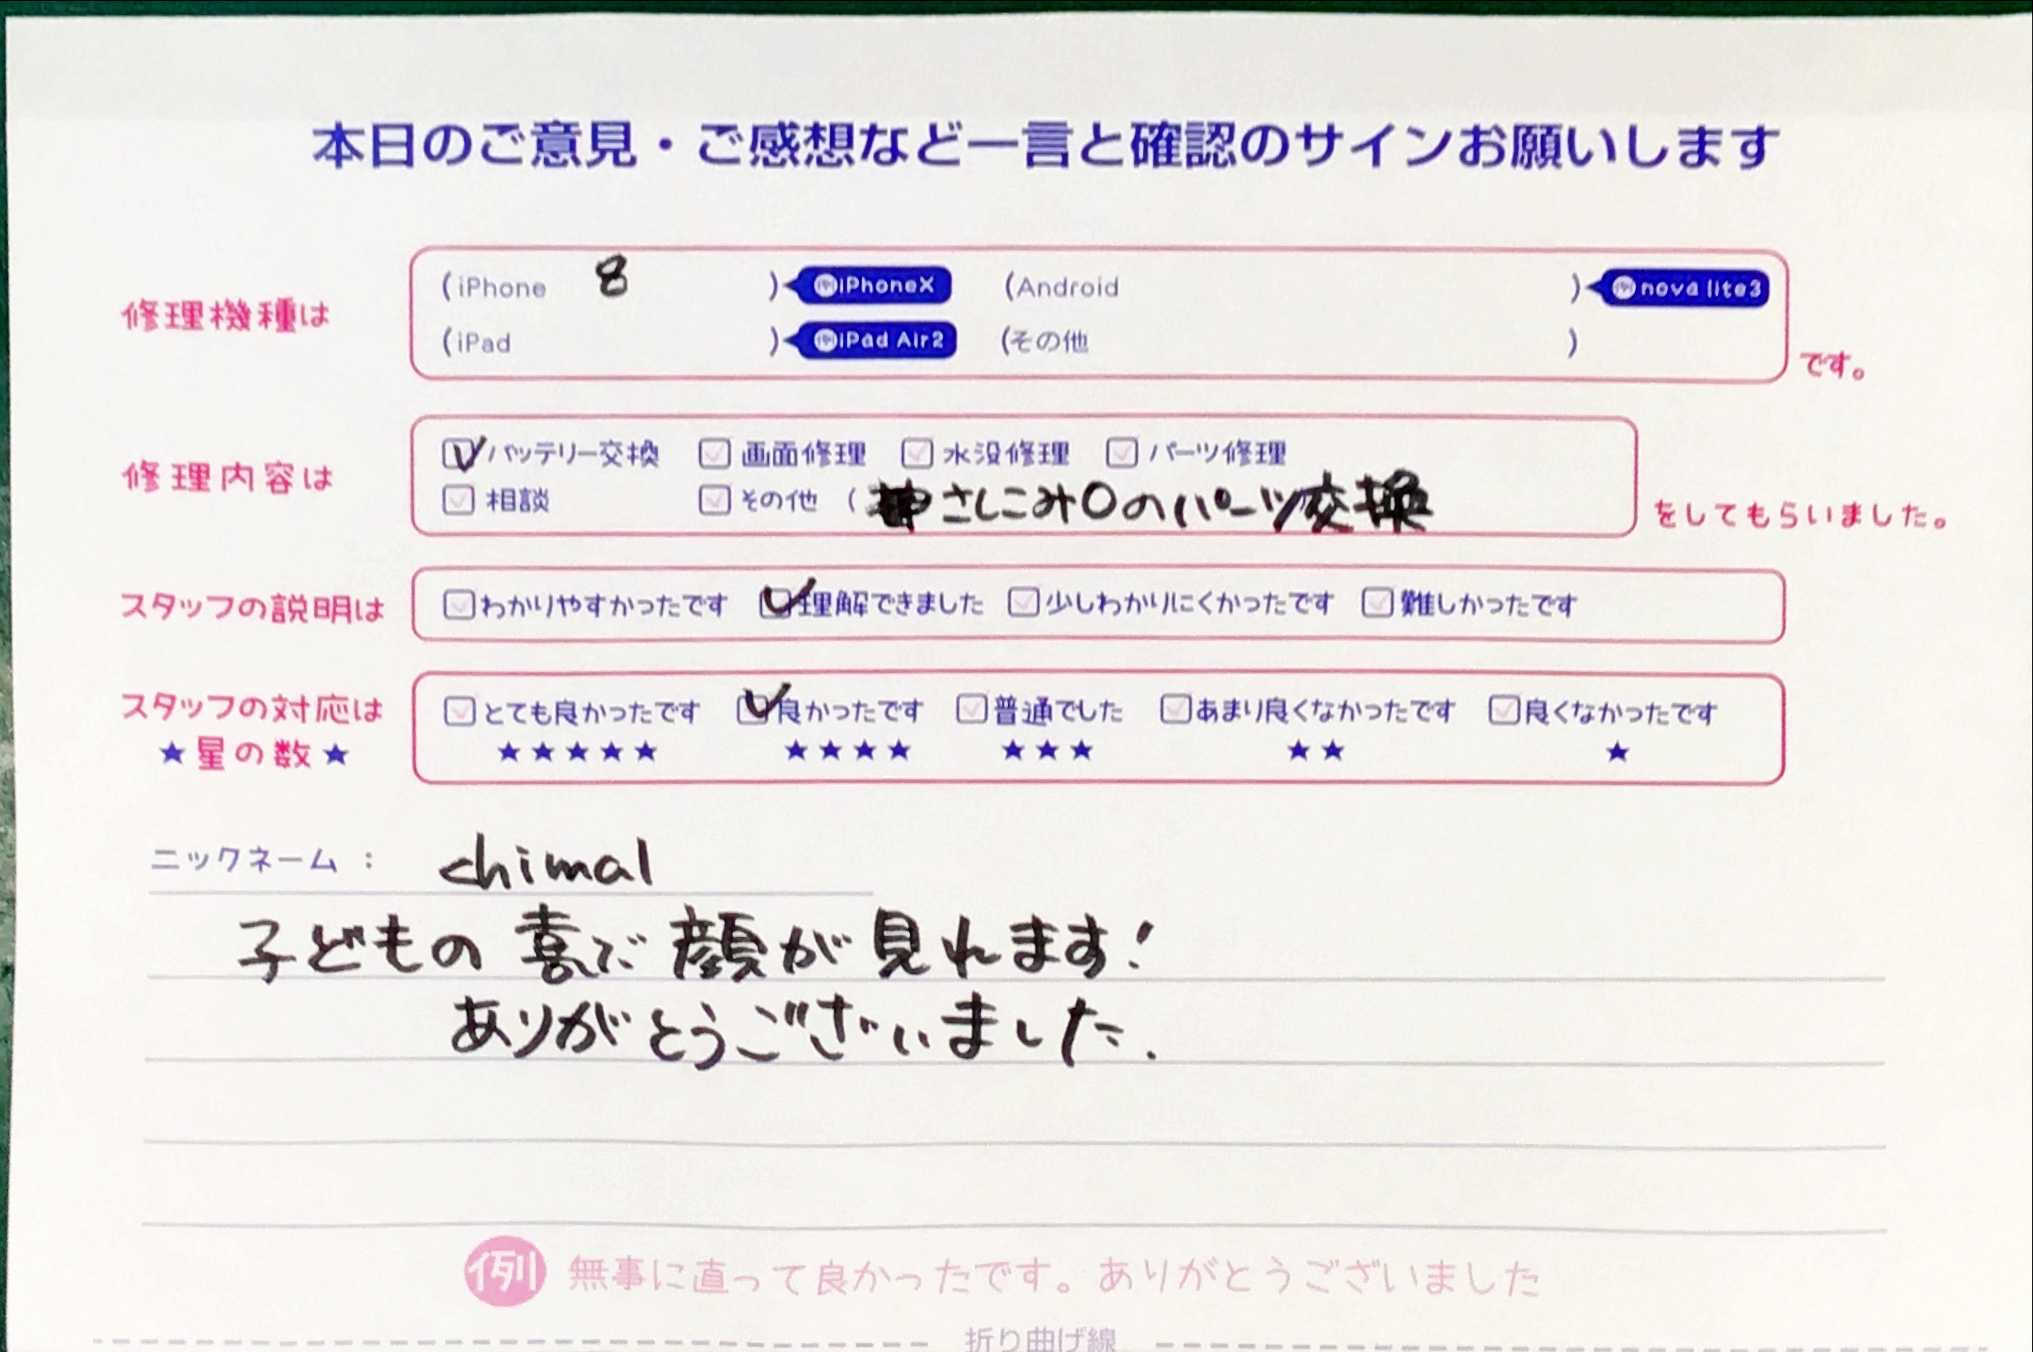 本日のご意見・ご感想など一言と確認のサインお願いします
修理機種は
(iPhone 8 ) 例iPhoneX (Android ) 例nova lite3
(iPad ) 例iPad Air2 (その他 )
です。
修理内容は
バッテリー交換 画面修理 水没修理 パーツ修理
相談 その他 ( さしこみ口のパーツ交換
をしてもらいました。
スタッフの説明は わかりやすかったです 理解できました 少しわかりにくかったです 難しかったです
スタッフの対応は とても良かったです 良かったです 普通でした あまり良くなかったです 良くなかったです
★星の数★ ★★★★★ ★★★★ ★★★ ★★ ★
ニックネーム： chimal
子どもの喜ぶ顔が見れます!
ありがとうございました.
例 無事に直って良かったです。ありがとうございました
折り曲げ線